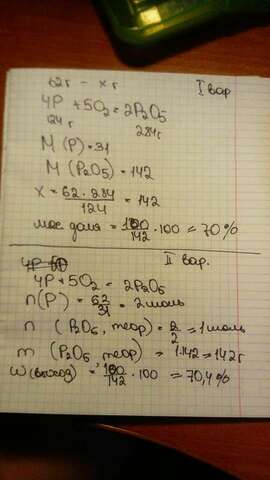 I вар
62г - x г
4P + 5O2 = 2P2O5
124г 284г
M (P) = 31
M (P2O5) = 142
x = 62 · 284 / 124 = 142
мас. доля = 100/142 · 100 = 70%
II вар.
4P + 5O2 = 2P2O5
n(P) = 62/31 = 2 моль
n (P2O5, теор) = 2/2 = 1 моль
m (P2O5 теор) = 1·142 = 142г
W (выход) = 100/142 · 100 = 70,4%